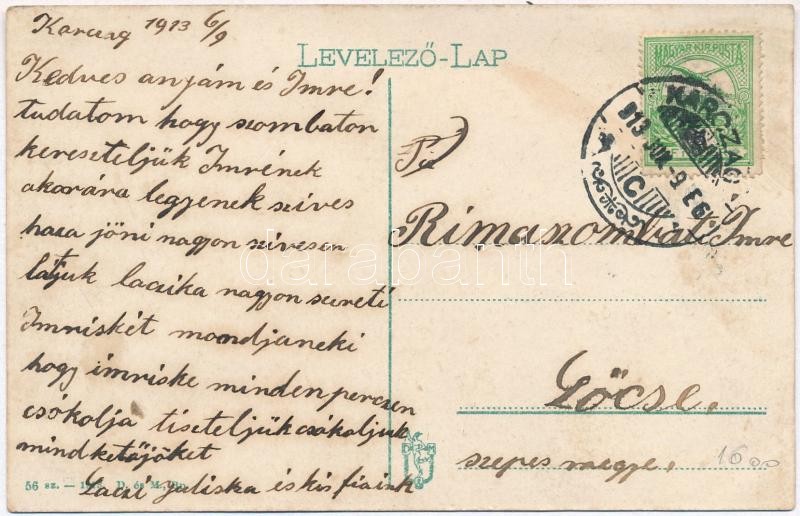 Karczag 1913 6/9
LEVELEZŐ-LAP
Kedves anyám és Imre!
tudatom hogy szombaton
kereszteljük Imrének
akorára legyenek szives
haza jöni nagyon szivesen
látjuk laczika nagyon szereti
Imriskét mondjaneki
hogy imriske minden perczen
csókolja tiszteljük csókoljuk
mindketőjöket
Laczi Juliska és kis fiaink
56 sz. — D. és M., Bp.
D M
MAGYAR KIR. POSTA
KARCZAG
913 JUN. -9 E
C
Rimaszombati Imre
Lőcse,
szepes megye,
1600
darabanth